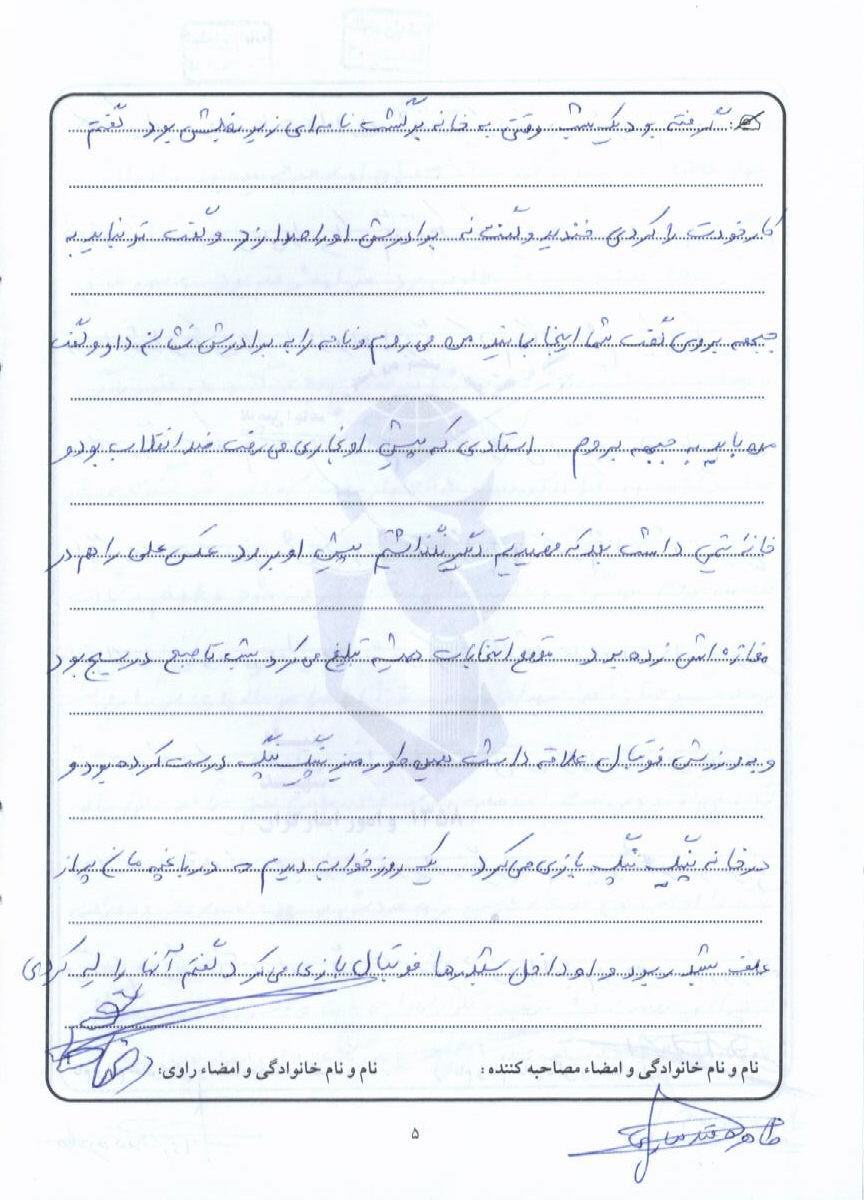 ج: گرفته بود یک شب وقتی به خانه برگشت نامه‌ای زیر بغلش بود گفتم
کار خودت را کردی خندید و گفت نه برادرش او را صدا زد و گفت تو نباید به
جبهه بروی گفت شما اینجا بمانید من می روم و نامه را به برادرش نشان داد و گفت
من باید به جبهه بروم استادی که پیش او نجاری می رفت ضد انقلاب بود و
خانه تیمی داشت بعد که فهمیدیم دیگر نگذاشتم پیش او برود عکس علی را هم در
مغازه اش زده بود موقع انتخابات همیشه تبلیغ می کرد شب تا صبح در بسیج بود
و به ورزش فوتبال علاقه داشت میز پینگ پنگ درست کرده بود و
در خانه پینگ پنگ بازی می کرد یک روز خواب دیدم که در باغچه مان پر از
علف شبدر بود و او داخل شبدرها فوتبال بازی می کرد گفتم آنها را له کردی
نام و نام خانوادگی و امضاء مصاحبه کننده : نام و نام خانوادگی و امضاء راوی:
۵